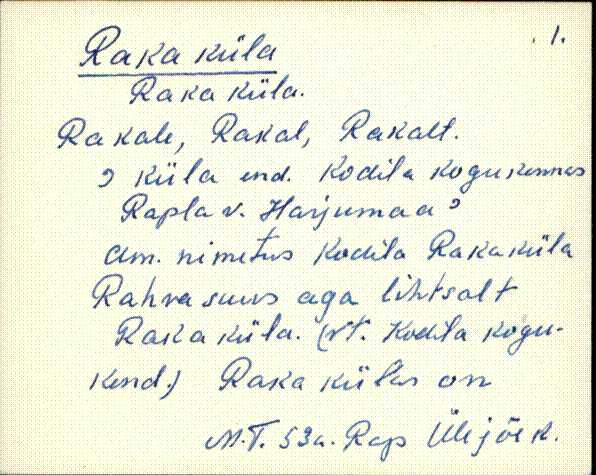 1.
Raka küla
Raka küla.
Rakale, Rakal, Rakalt.
? küla end. Kodila kogukonnas
Rapla v. Harjumaa?
Am. nimetus Kodila Raka küla
Rahva suus aga lihtsalt
Raka küla. (vt. Kodila kogu-
kond.) Raka külas on
M.T. 53a. Rap Ülejõe k.